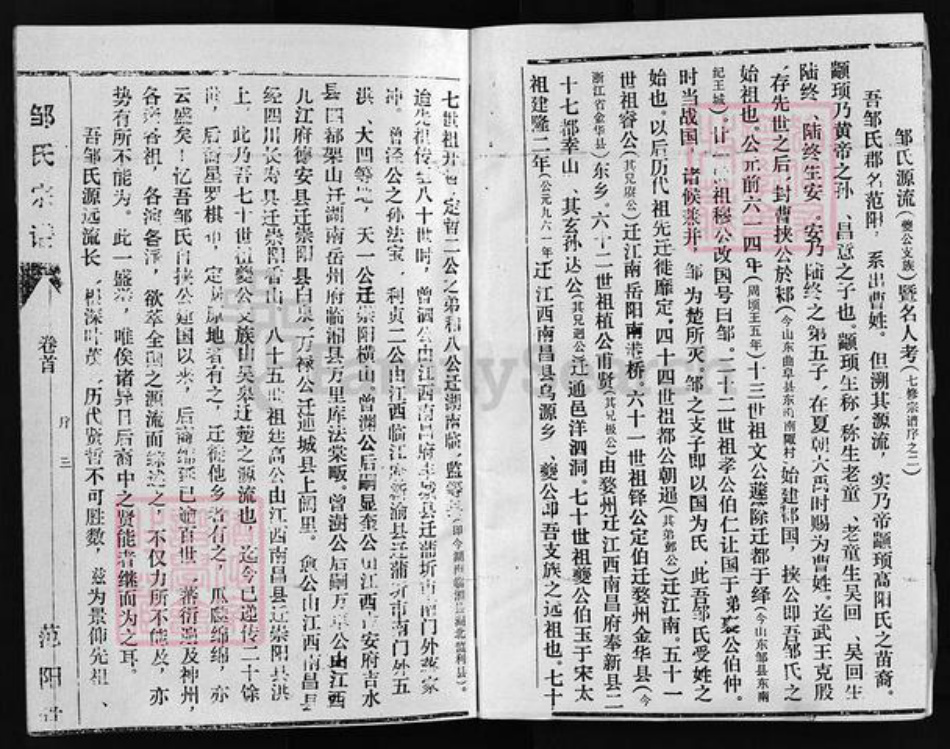 邹氏源流（夔公支族）暨名人考（七修宗谱序之二）
吾邹氏郡名范阳，系出曹姓。但溯其源流，实乃帝颛顼高阳氏之苗裔。
颛顼乃黄帝之孙、昌意之子也。颛顼生称，称生老童、老童生吴回、吴回生
陆终、陆终生安。安乃陆终之第五子，在夏朝大禹时赐为曹姓。迄武王克殷
，存先世之后，封曹挟公於邾（今山东曲阜县东南南陬村）始建邾国，挟公即吾邹氏之
始祖也。公元前六一四年（周顷王五年）十三世祖文公蘧蒢迁都于绎（今山东邹县东南
纪王城）。计 祖穆公改国号曰邹。二十二世祖孝公伯仁让国于弟 公伯仲。
时当战国，诸侯兼并，邹为楚所灭，邹之支子即以国为氏，此吾邹氏受姓之
始也。以后历代祖先迁徙靡定。四十四世祖都公朝逊（其弟邺公）迁江南。五十一
世祖睿公（其兄 公）迁江南岳阳南港桥。六十一世祖铎公定伯迁婺州金华县（今
浙江省金华县）东乡。六十二世祖植公甫贤（其兄极公）由婺州迁江西南昌府奉新县二
十七都奉山、其玄孙达公（其兄迥公）迁通邑洋泗洞。七十世祖夔公伯玉于宋太
祖建隆二年（公元九六一年）迁江西南昌县乌源乡、夔公即吾支族之远祖也。七十
七世祖 定智二公之弟和八公迁湖南临、监 （即今湖南临湘县湖北监利县）。
迨先祖传至八十世时，曾泗公由江西南昌府 县迁蒲圻南 门外 家
冲。曾泾公之孙法宝、利贞二公由江西临江 新渝县迁蒲圻市南门外五
洪、大凹等地，天一公迁崇阳横山，曾渊公后嗣显奎公由江西吉安府吉水
县四都架山迁湖南岳州府临湘县万里库法棠畈。曾澍公后嗣万 公由江西
九江府德安县迁崇阳县白泉，万禄公迁通城县上阔里。愈公由江西南昌县
经四川长寿县迁崇阳香山、八十五世祖廷高公由江西南昌县迁崇阳县洪
上，此乃吾七十世祖夔公支族由吴皋迁楚之源流也，迄今已递传二十馀
世，后裔星罗棋布，定居原地者有之，迁徙他乡者有之，瓜瓞绵绵，亦
云盛矣！忆吾邹氏自挟公建国以来，后裔绵延已逾百世，蕃衍 及神州，
各宗各祖，各演各派，欲萃全国之源流而综述之，不仅力所不能及，亦
势有所不能为。此一盛举，唯俟诸异日后裔中之贤能者继而为之耳。
吾邹氏源远流长，根深叶茂，历代贤哲不可胜数，兹为景仰先祖、
邹氏宗谱
卷首
序
三
范阳堂